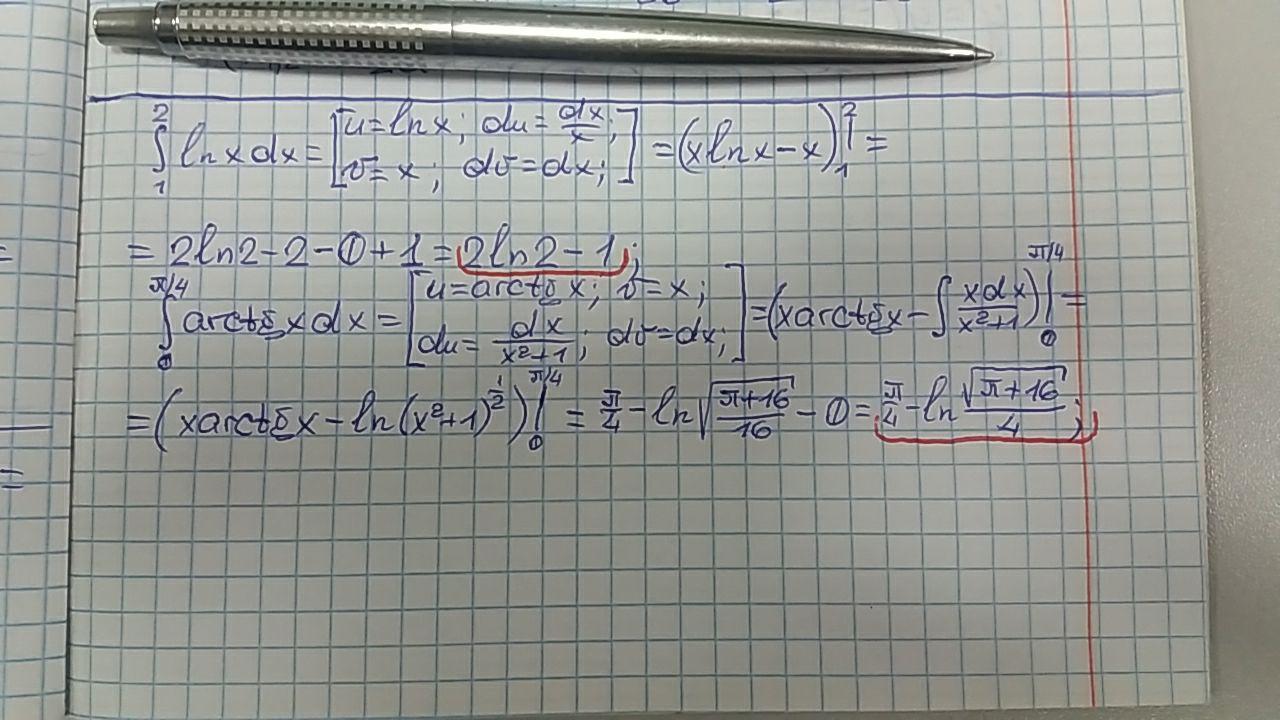 ∫₁² ln x dx = [u = ln x; du = dx/x; v = x; dv = dx;] = (x ln x − x)|₁² =
= 2ln2 − 2 − 0 + 1 = 2ln2 − 1;
∫₀^(π/4) arctg x dx = [u = arctg x; v = x; du = dx/(x²+1); dv = dx;] = (x arctg x − ∫ xdx/(x²+1))|₀^(π/4) =
= (x arctg x − ln(x²+1)^(1/2))|₀^(π/4) = π/4 − ln√((π+16)/16) − 0 = π/4 − ln √(π+16)/4;
=
=